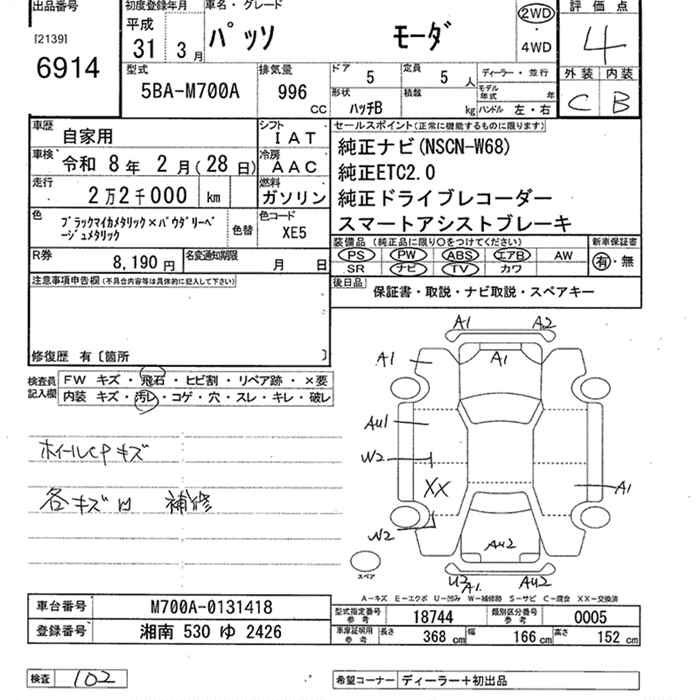 出品番号
[2139]
6914
初度登録年月
平成
31 3月
車名・グレード
パッソ モーダ
2WD
・
4WD
評価点
4
外装 内装
C B
型式
5BA-M700A
排気量
996
CC
ドア 5
定員 5 人
形状 ハッチB
積載 kg
ディーラー・並行
モデル年式 年
ハンドル 左・右
車歴 自家用
シフト IAT
車検 令和 8年 2月(28日)
冷房 AAC
走行 2万2千000 km
燃料 ガソリン
色 ブラックマイカメタリック×パウダリーベージュメタリック
色替
色コード XE5
R券 8,190円
名変通知期限 月 日
セールスポイント(正常に機能するものに限ります)
純正ナビ(NSCN-W68)
純正ETC2.0
純正ドライブレコーダー
スマートアシストブレーキ
装備品 (純正品に限り○をつけてください)
新車保証書
PS PW ABS エアB AW
有・無
SR ナビ TV カワ
後日品 保証書・取説・ナビ取説・スペアキー
注意事項申告欄 (不具合内容等は具体的に記入して下さい)
修復歴 有〔箇所 〕
検査員記入欄
FW キズ・飛石・ヒビ割・リペア跡・×要
内装 キズ・汚レ・コゲ・穴・スレ・キレ・破レ
ホイールCPキズ
各キズ凹 補修
A1 A2
A1 A1
AU1
W2
XX
A1
W2
AU2
スペア
U2 A1 AU2
A-キズ E-エクボ U-凹み W-補修跡 S-サビ C-腐食 XX-交換済
車台番号 M700A-0131418
登録番号 湘南 530 ゆ 2426
型式指定番号 参考 18744
類別区分番号 参考 0005
車庫証明用 参考 長さ 368 cm 幅 166 cm 高さ 152 cm
検査 102
希望コーナー ディーラー+初出品